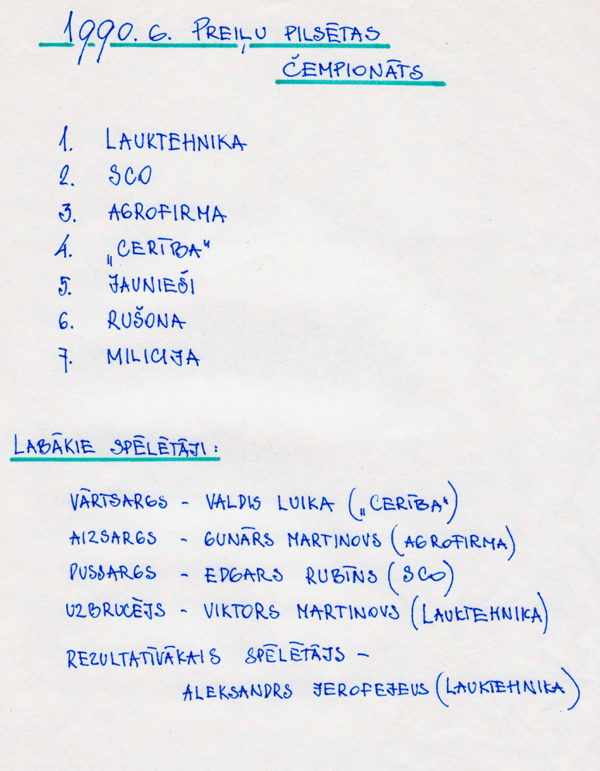 1990. 6. PREIĻU PILSĒTAS
ČEMPIONĀTS
1. LAUKTEHNIKA
2. SCO
3. AGROFIRMA
4. „CERĪBA"
5. JAUNIEŠI
6. RUŠONA
7. MILICIJA
LABĀKIE SPĒLĒTĀJI:
VĀRTSARGS – VALDIS LUIKA („CERĪBA")
AIZSARGS – GUNĀRS MARTINOVS (AGROFIRMA)
PUSSARGS – EDGARS RUBĪNS (SCO)
UZBRUCĒJS – VIKTORS MARTINOVS (LAUKTEHNIKA)
REZULTATĪVĀKAIS SPĒLĒTĀJS –
ALEKSANDRS JEROFEJEVS (LAUKTEHNIKA)